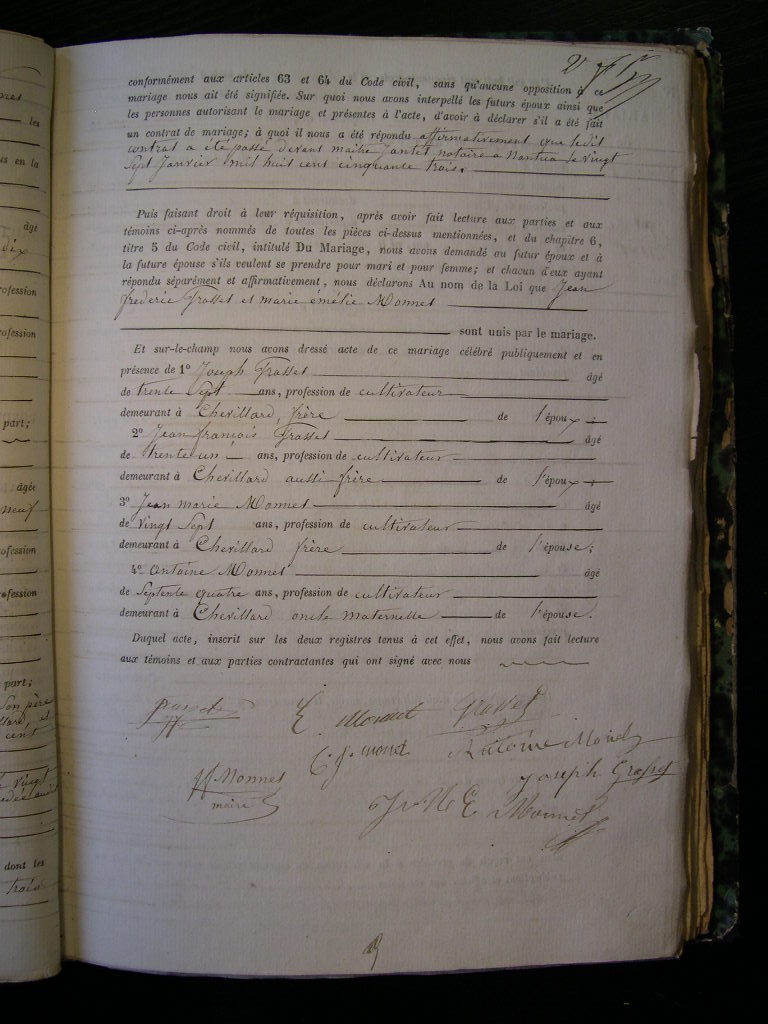 conformément aux articles 63 et 64 du Code civil, sans qu'aucune opposition à ce
mariage nous ait été signifiée. Sur quoi nous avons interpellé les futurs époux ainsi que
les personnes autorisant le mariage et présentes à l'acte, d'avoir à déclarer s'il a été fait
un contrat de mariage; à quoi il nous a été répondu affirmativement que ledit
contrat a été passé devant maitre Jantet notaire a Nantua le vingt
Sept Janvier mil huit cent cinquante trois.
Puis faisant droit à leur réquisition, après avoir fait lecture aux parties et aux
témoins ci-après nommés de toutes les pièces ci-dessus mentionnées, et du chapitre 6,
titre 5 du Code civil, intitulé Du Mariage, nous avons demandé au futur époux et à
la future épouse s'ils veulent se prendre pour mari et pour femme; et chacun d'eux ayant
répondu séparément et affirmativement, nous déclarons Au nom de la Loi que Jean
frederic Grosset et marie émélie Monnet
sont unis par le mariage.
Et sur-le-champ nous avons dressé acte de ce mariage célébré publiquement et en
présence de 1º Joseph Grosset âgé
de trente Sept ans, profession de cultivateur
demeurant à Chevillard, frère de l'époux
2º Jean françois Grosset âgé
de trente un ans, profession de cultivateur
demeurant à Chevillard aussi frère de l'époux
3º Jean marie Monnet âgé
de vingt Sept ans, profession de cultivateur
demeurant à Chevillard frère de l'épouse;
4º antoine Monnet âgé
de Septente quatre ans, profession de cultivateur
demeurant à Chevillard oncle maternelle de l'épouse.
Duquel acte, inscrit sur les deux registres tenus à cet effet, nous avons fait lecture
aux témoins et aux parties contractantes qui ont signé avec nous
E Monnet Grosset
C. J. monet Antoine Monet
Monnet Joseph Grosset
maire
J M E Monnet
les
us en la
âgé
dix
rofession
rofession
part;
âgée
neuf
ofession
ofession
part;
Son père
cent
vingt
dont les
trois